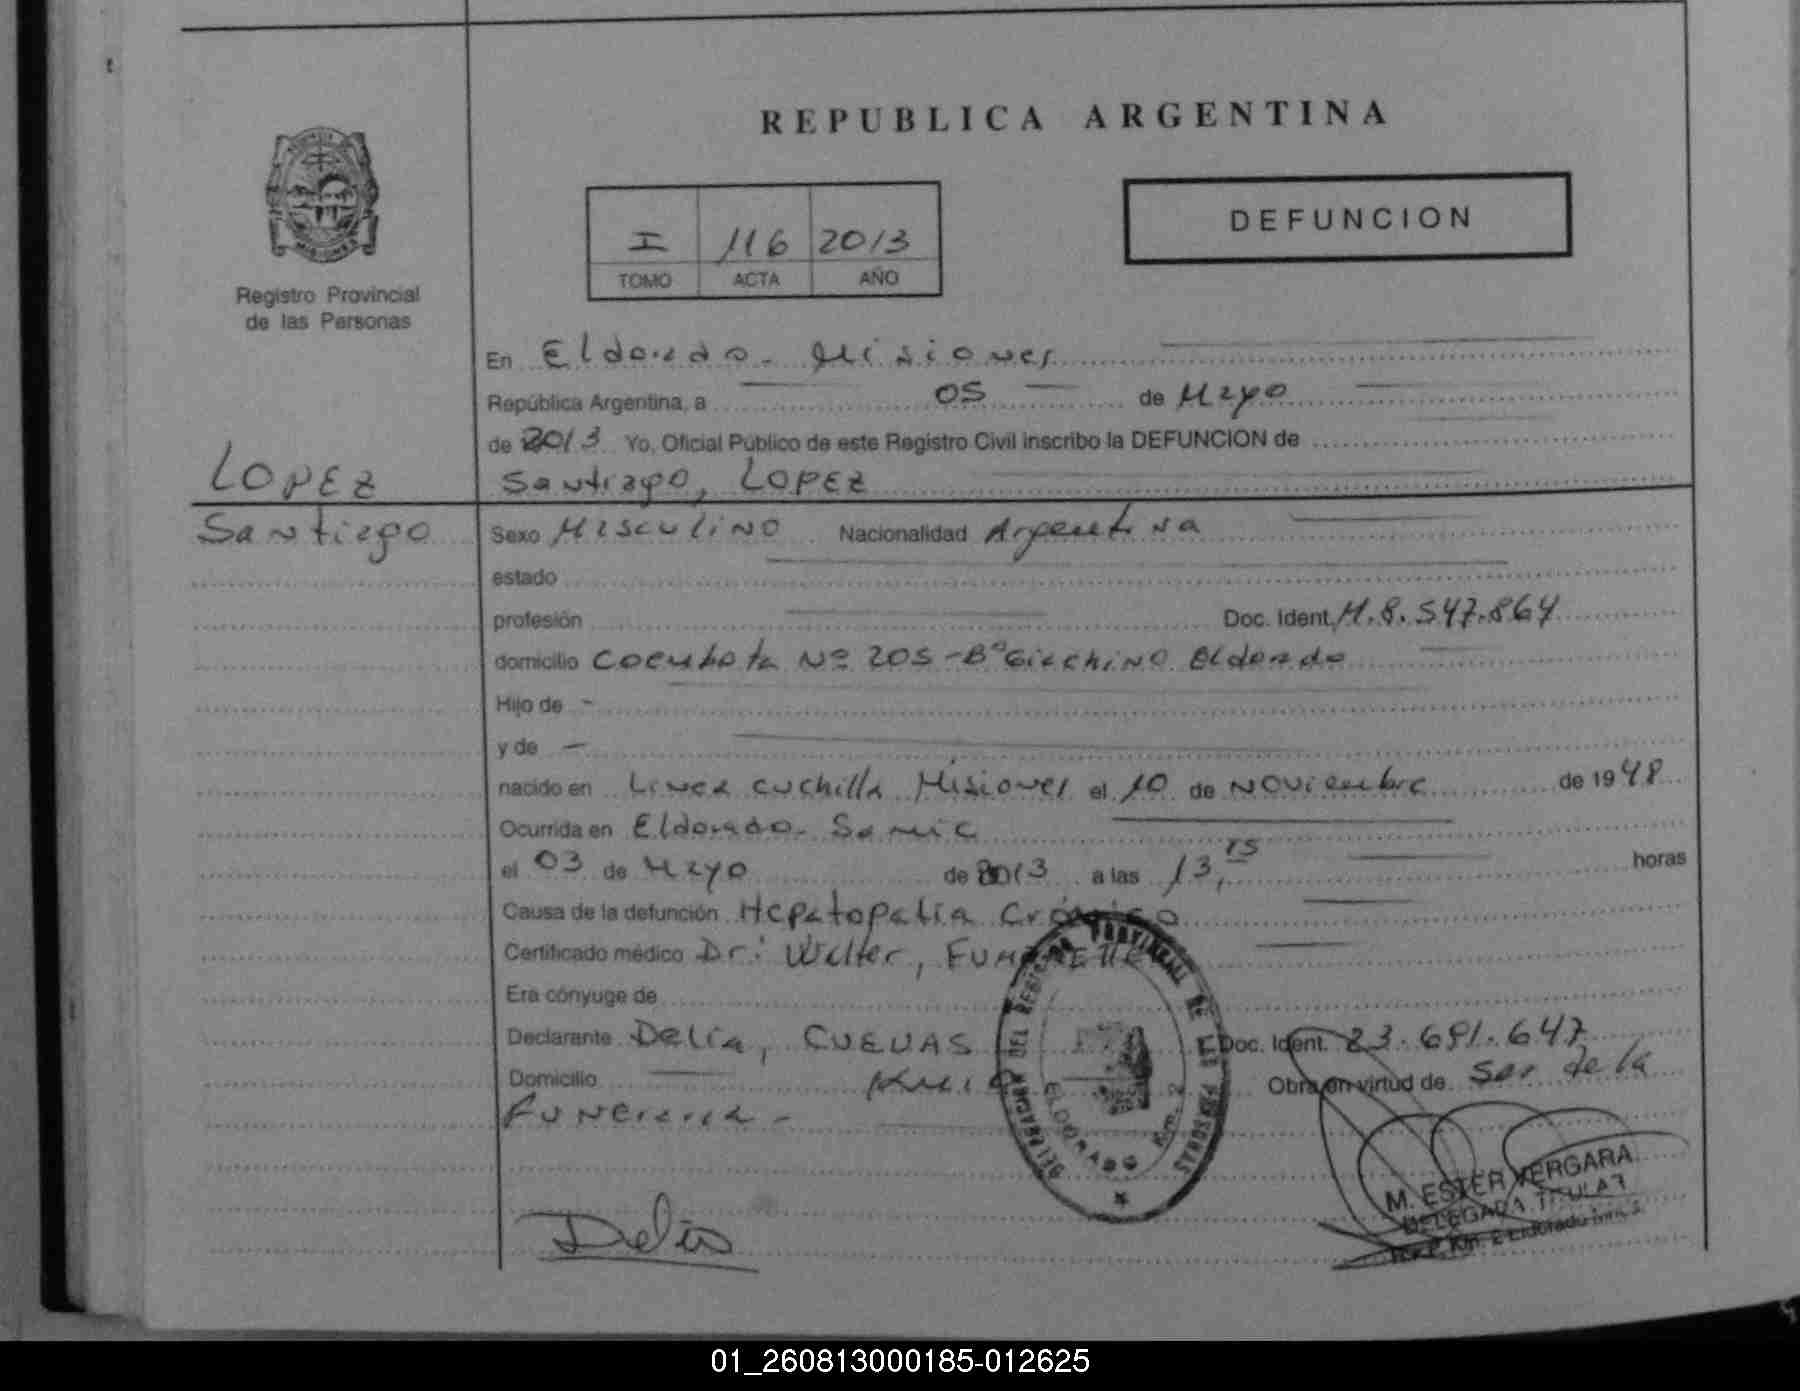 REPUBLICA ARGENTINA
DEFUNCION
I 116 2013
TOMO ACTA AÑO
Registro Provincial
de las Personas
En Eldorado - Misiones
República Argentina, a 05 de Mayo
de 2013 Yo, Oficial Público de este Registro Civil inscribo la DEFUNCION de
LOPEZ
Santiago
Santiago, LOPEZ
Sexo Masculino Nacionalidad Argentina
estado
profesión Doc. Ident. M.8.547.864
domicilio Nº 205 - Bº Eldorado
Hijo de -
y de -
nacido en Linea cuchilla Misiones el 10 de Noviembre de 1948
Ocurrida en Eldorado - Samic
el 03 de Mayo de 2013 a las 13,15 horas
Causa de la defunción Hepatopatia Crónica
Certificado médico Dr: Walter,
Era cónyuge de
Declarante Delia, CUEVAS Doc. Ident. 23.691.647
Domicilio Obra en virtud de Ser de la
Funeraria -
DELEGACION DEL REGISTRO PROVINCIAL DE LAS PERSONAS
ELDORADO Km. 2
Delia
M. ESTER VERGARA
DELEGADA TITULAR
Km. 2 Eldorado
01_260813000185-012625